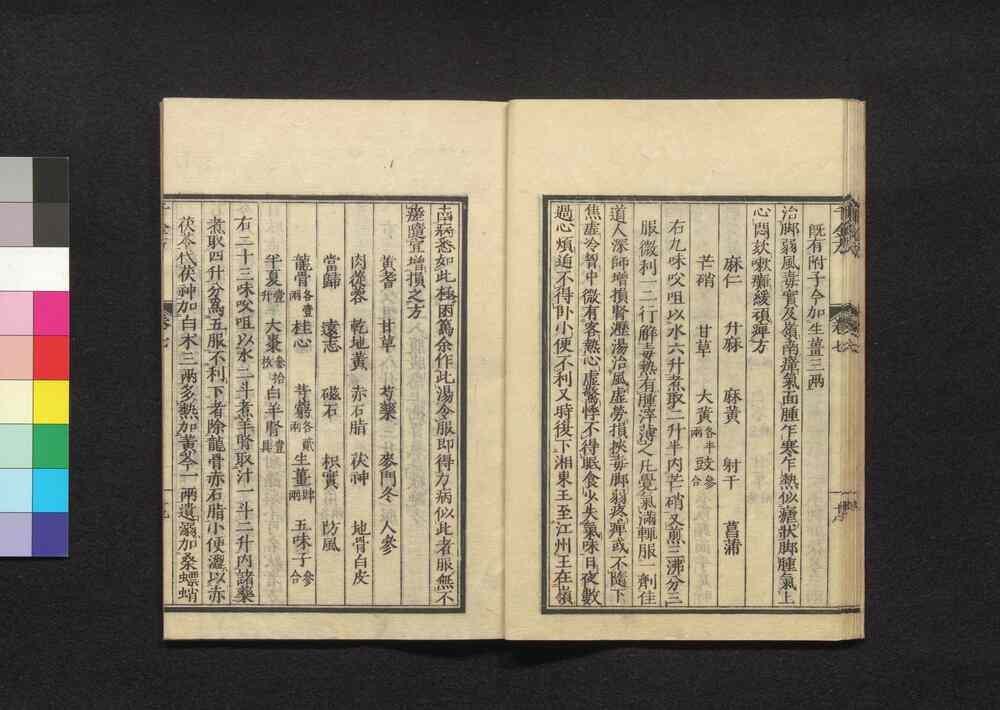 既有附子今加生薑三兩
治脚弱風毒實及嶺南瘴氣面腫乍寒乍熱似瘧狀脚腫氣上
心悶欬嗽癱緩頑痺方
麻仁 升麻 麻黃 射干 菖蒲
芒硝 甘草 大黃各半兩 豉參合
右九味㕮咀以水六升煮取二升半內芒硝又煎三沸分三
服微利一二行解毒熱有腫滓薄之凡覺氣滿輒服一劑佳
道人深師增損腎瀝湯治風虛勞損挾毒脚弱疼痺或不隨下
焦虛冷胷中微有客熱心虛驚悸不得眠食少失氣味日夜數
過心煩迫不得臥小便不利又時復下湘東王至江州王在嶺
南病悉如此極困篤余作此湯令服即得力病似此者服無不
瘥隨宜增損之方
黃耆 甘草 芍藥 麥門冬 人參
肉蓯蓉 乾地黃 赤石脂 茯神 地骨白皮
當歸 遠志 磁石 枳實 防風
龍骨各壹兩 桂心 芎藭各貳兩 生薑肆兩 五味子參合
半夏壹升 大棗參拾枚 白羊腎壹具
右二十三味㕮咀以水二斗煮羊腎取汁一斗二升內諸藥
煮取四升分爲五服不利下者除龍骨赤石脂小便澀以赤
茯苓代茯神加白朮三兩多熱加黃芩一兩遺溺加桑螵蛸